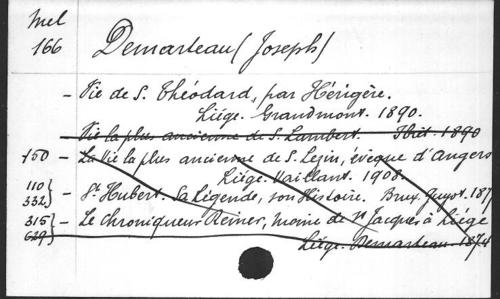 Mel
166
Demarteau (Joseph)
- Vie de S. Théodard, par Hérigère.
Liége. Grandmont. 1890.
Vie la plus ancienne de S. Lambert. Ibid. 1890
150 - La vie la plus ancienne de S. Lezin, évêque d'Angers
Liége. Vaillant. 1908.
110
332} - St Hubert. Sa Légende, son Histoire. Brux. Guyot. 187
315} - Le chroniqueur Reiner, moine de St Jacques à Liége
629
Liége. Demarteau. 1874